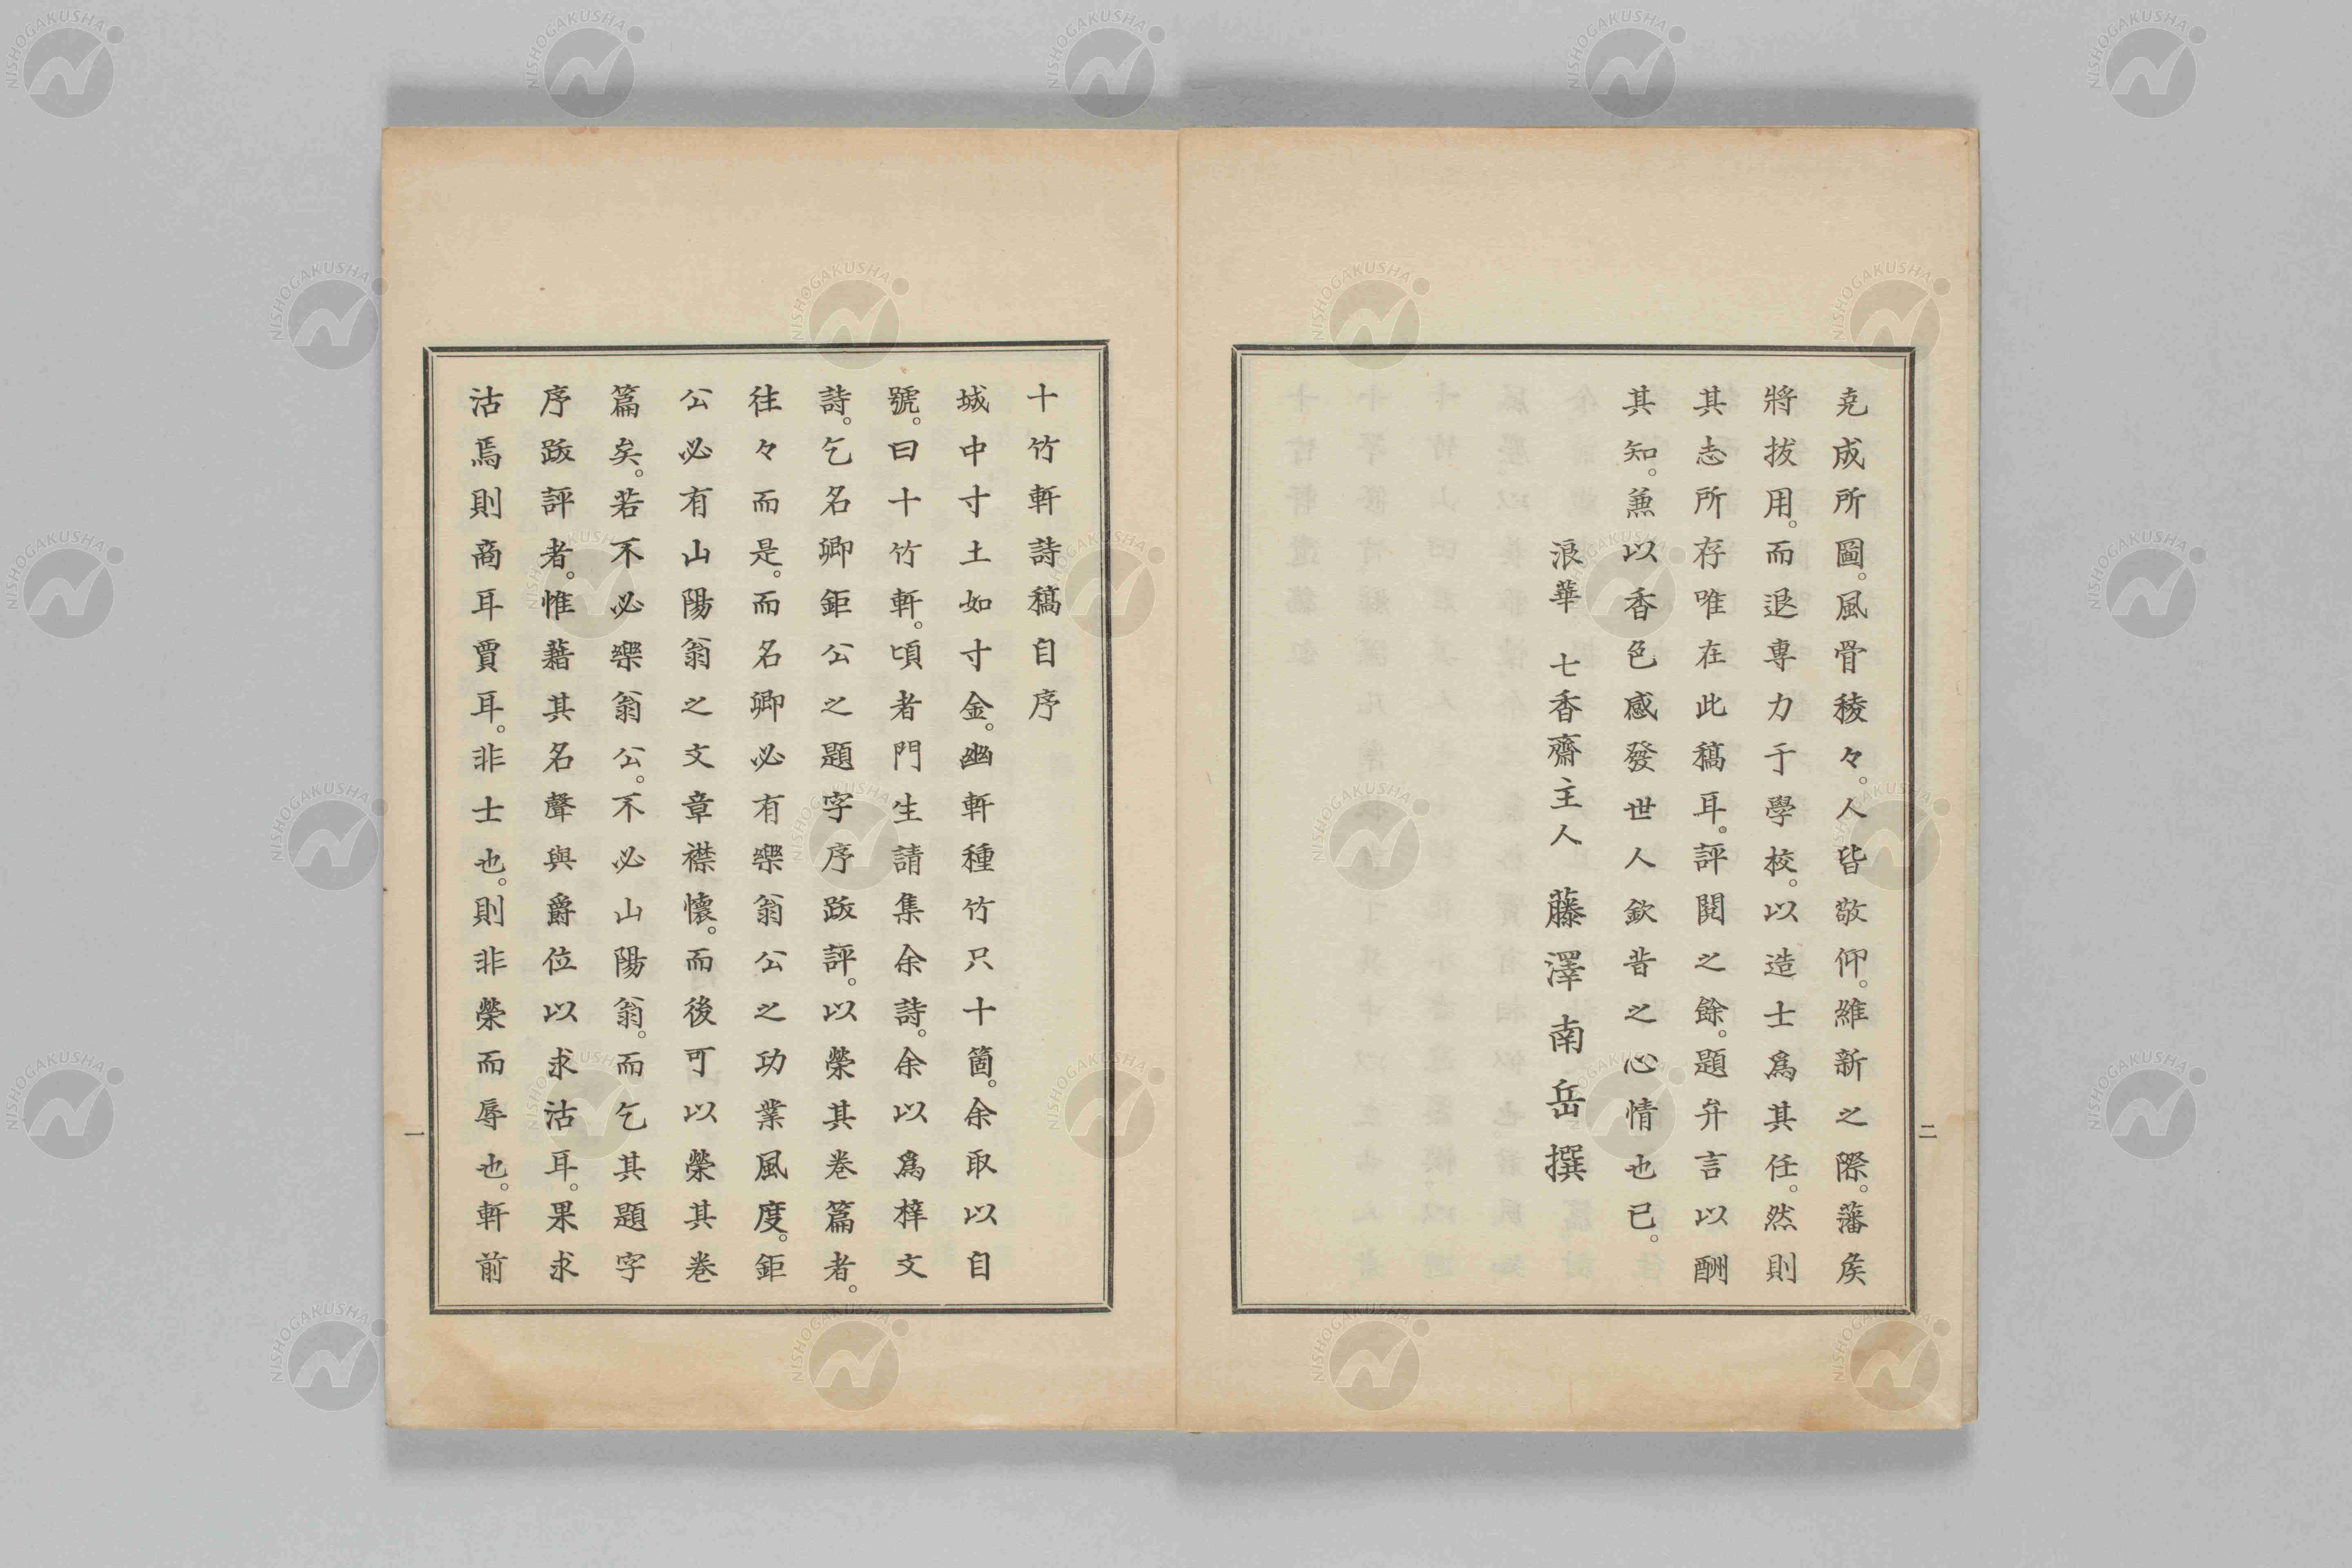 克成所圖。風骨稜々。人皆敬仰。維新之際。藩矦
將拔用。而退專力于學校。以造士爲其任。然則
其志所存唯在此稿耳。評閱之餘。題弁言以酬
其知。兼以香色感發世人欽昔之心情也已。
浪華 七香齋主人 藤澤南岳撰
二
十竹軒詩稿自序
城中寸土如寸金。幽軒種竹只十箇。余取以自
號。曰十竹軒。頃者門生請集余詩。余以爲梓文
詩。乞名卿鉅公之題字序跋評。以榮其卷篇者。
往々而是。而名卿必有樂翁公之功業風度。鉅
公必有山陽翁之文章襟懷。而後可以榮其卷
篇矣。若不必樂翁公。不必山陽翁。而乞其題字
序跋評者。惟藉其名聲與爵位以求沽耳。果求
沽焉則商耳賈耳。非士也。則非榮而辱也。軒前
一
NISHOGAKUSHA